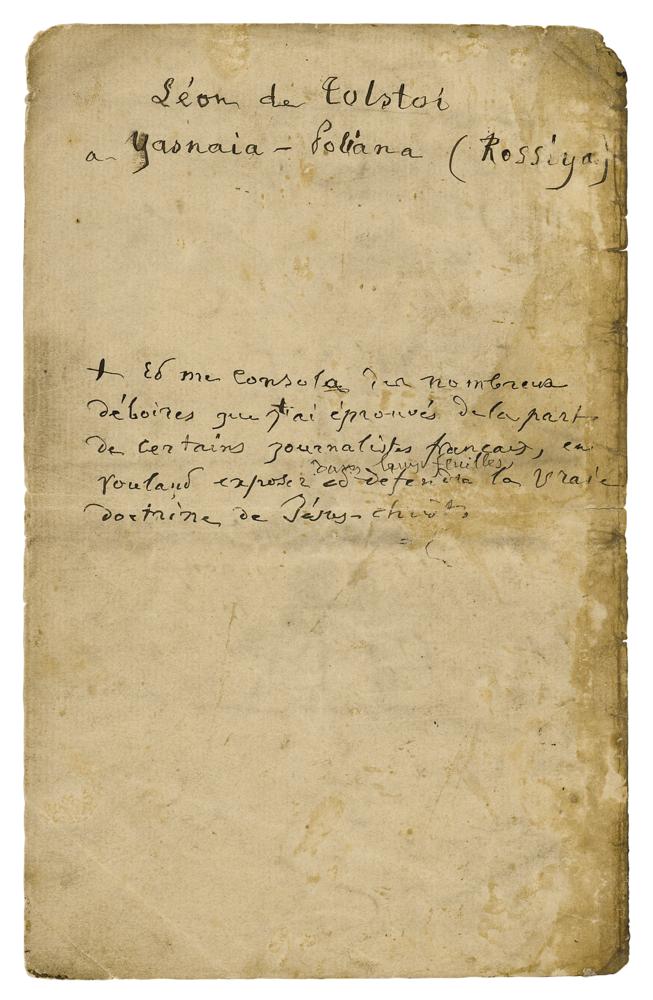 Léon de Tolstoi
a Yasnaia - Poliana (Rossiya)
+ Et me consola des nombreux
déboires que j'ai éprouvés de la part
de certains journalistes français, en
dans leurs feuilles
voulant exposer et défendre la vraie
doctrine de Jésus-christ